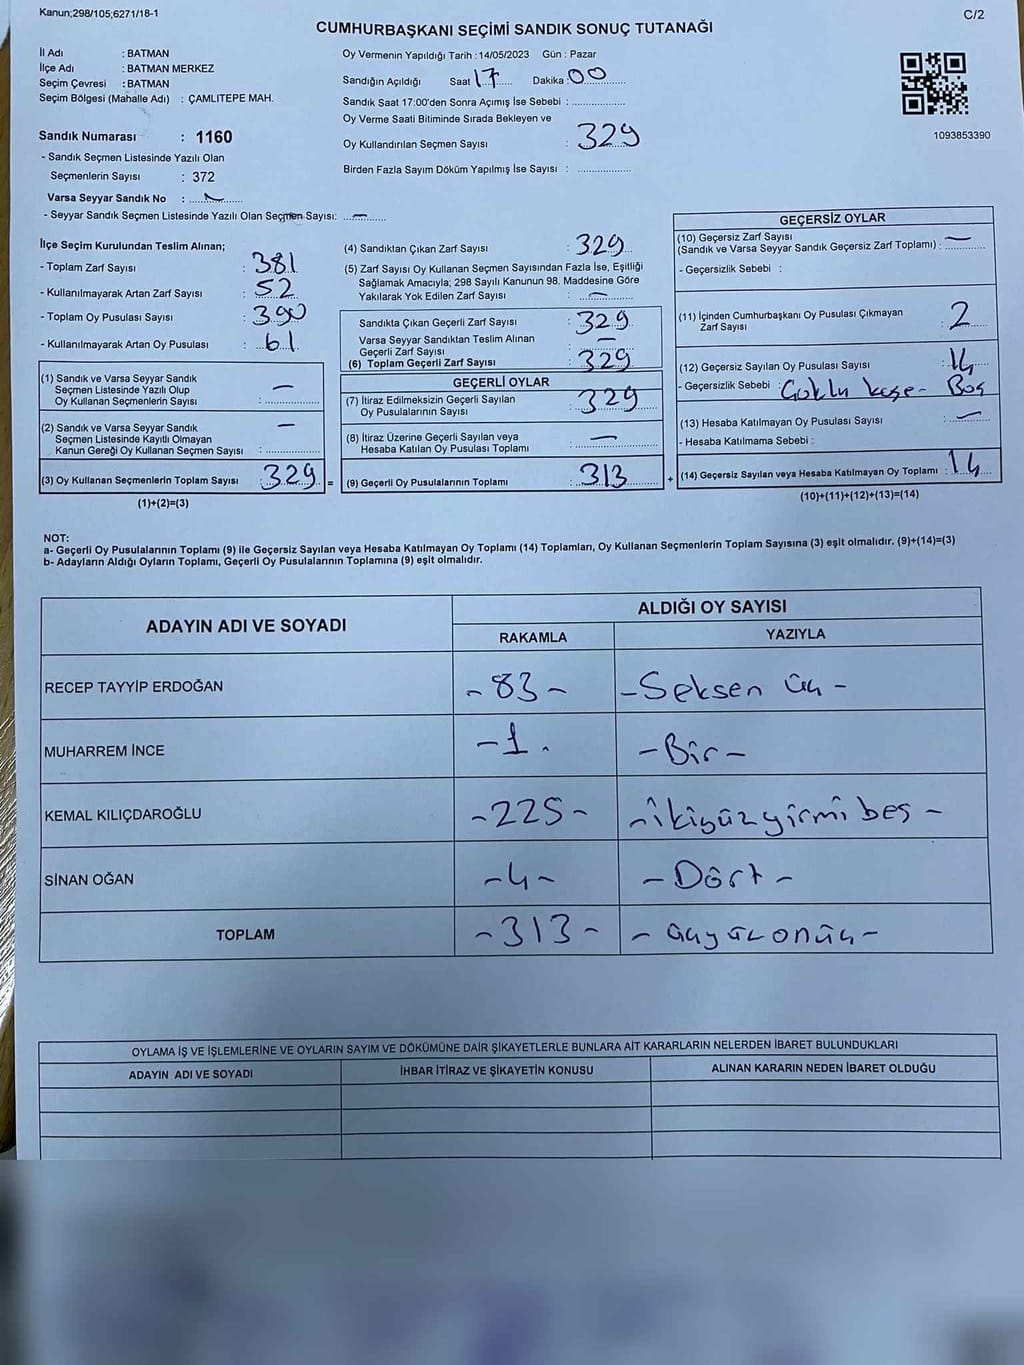 Kanun;298/105;6271/18-1
C/2
CUMHURBAŞKANI SEÇİMİ SANDIK SONUÇ TUTANAĞI
İl Adı : BATMAN
İlçe Adı : BATMAN MERKEZ
Seçim Çevresi : BATMAN
Seçim Bölgesi (Mahalle Adı) : ÇAMLITEPE MAH.
Sandık Numarası : 1160
- Sandık Seçmen Listesinde Yazılı Olan
Seçmenlerin Sayısı : 372
Varsa Seyyar Sandık No :
- Seyyar Sandık Seçmen Listesinde Yazılı Olan Seçmen Sayısı: —
Oy Vermenin Yapıldığı Tarih :14/05/2023 Gün : Pazar
Sandığın Açıldığı Saat 17 Dakika : 00
Sandık Saat 17:00'den Sonra Açımış İse Sebebi :
Oy Verme Saati Bitiminde Sırada Bekleyen ve
Oy Kullandırılan Seçmen Sayısı : 329
Birden Fazla Sayım Döküm Yapılmış İse Sayısı :
1093853390
İlçe Seçim Kurulundan Teslim Alınan;
- Toplam Zarf Sayısı : 381
- Kullanılmayarak Artan Zarf Sayısı : 52
- Toplam Oy Pusulası Sayısı : 390
- Kullanılmayarak Artan Oy Pusulası : 61
(1) Sandık ve Varsa Seyyar Sandık
Seçmen Listesinde Yazılı Olup
Oy Kullanan Seçmenlerin Sayısı : —
(2) Sandık ve Varsa Seyyar Sandık
Seçmen Listesinde Kayıtlı Olmayan
Kanun Gereği Oy Kullanan Seçmen Sayısı : —
(3) Oy Kullanan Seçmenlerin Toplam Sayısı : 329 =
(1)+(2)=(3)
(4) Sandıktan Çıkan Zarf Sayısı : 329
(5) Zarf Sayısı Oy Kullanan Seçmen Sayısından Fazla İse, Eşitliği
Sağlamak Amacıyla; 298 Sayılı Kanunun 98. Maddesine Göre
Yakılarak Yok Edilen Zarf Sayısı : —
Sandıkta Çıkan Geçerli Zarf Sayısı : 329
Varsa Seyyar Sandıktan Teslim Alınan
Geçerli Zarf Sayısı : —
(6) Toplam Geçerli Zarf Sayısı : 329
GEÇERLİ OYLAR
(7) İtiraz Edilmeksizin Geçerli Sayılan
Oy Pusulalarının Sayısı : 329
(8) İtiraz Üzerine Geçerli Sayılan veya
Hesaba Katılan Oy Pusulası Toplamı : —
(9) Geçerli Oy Pusulalarının Toplamı : 313 +
GEÇERSİZ OYLAR
(10) Geçersiz Zarf Sayısı
(Sandık ve Varsa Seyyar Sandık Geçersiz Zarf Toplamı) : —
- Geçersizlik Sebebi :
(11) İçinden Cumhurbaşkanı Oy Pusulası Çıkmayan
Zarf Sayısı : 2
(12) Geçersiz Sayılan Oy Pusulası Sayısı : 14
- Geçersizlik Sebebi : Çoklu kaşe - Boş
(13) Hesaba Katılmayan Oy Pusulası Sayısı : —
- Hesaba Katılmama Sebebi :
(14) Geçersiz Sayılan veya Hesaba Katılmayan Oy Toplamı : 14
(10)+(11)+(12)+(13)=(14)
NOT:
a- Geçerli Oy Pusulalarının Toplamı (9) ile Geçersiz Sayılan veya Hesaba Katılmayan Oy Toplamı (14) Toplamları, Oy Kullanan Seçmenlerin Toplam Sayısına (3) eşit olmalıdır. (9)+(14)=(3)
b- Adayların Aldığı Oyların Toplamı, Geçerli Oy Pusulalarının Toplamına (9) eşit olmalıdır.
ADAYIN ADI VE SOYADI
ALDIĞI OY SAYISI
RAKAMLA YAZIYLA
RECEP TAYYİP ERDOĞAN - 83 - - Seksen üç -
MUHARREM İNCE - 1 . - Bir -
KEMAL KILIÇDAROĞLU - 225 - - ikiyüzyirmibeş -
SİNAN OĞAN - 4 - - Dört -
TOPLAM - 313 - - üçyüzonüç -
OYLAMA İŞ VE İŞLEMLERİNE VE OYLARIN SAYIM VE DÖKÜMÜNE DAİR ŞİKAYETLERLE BUNLARA AİT KARARLARIN NELERDEN İBARET BULUNDUKLARI
ADAYIN ADI VE SOYADI İHBAR İTİRAZ VE ŞİKAYETİN KONUSU ALINAN KARARIN NEDEN İBARET OLDUĞU